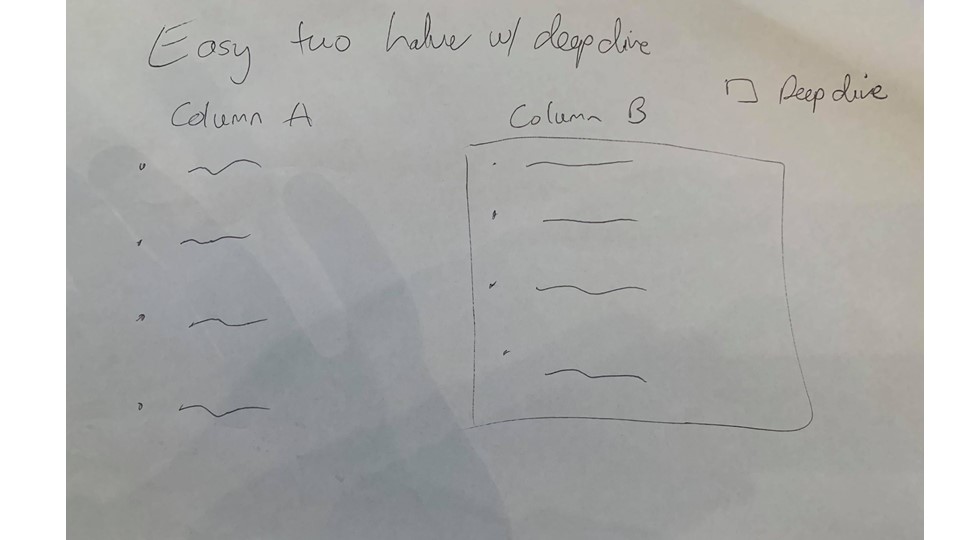 Easy two halve w/ deepdive
Deepdive
Column A
Column B